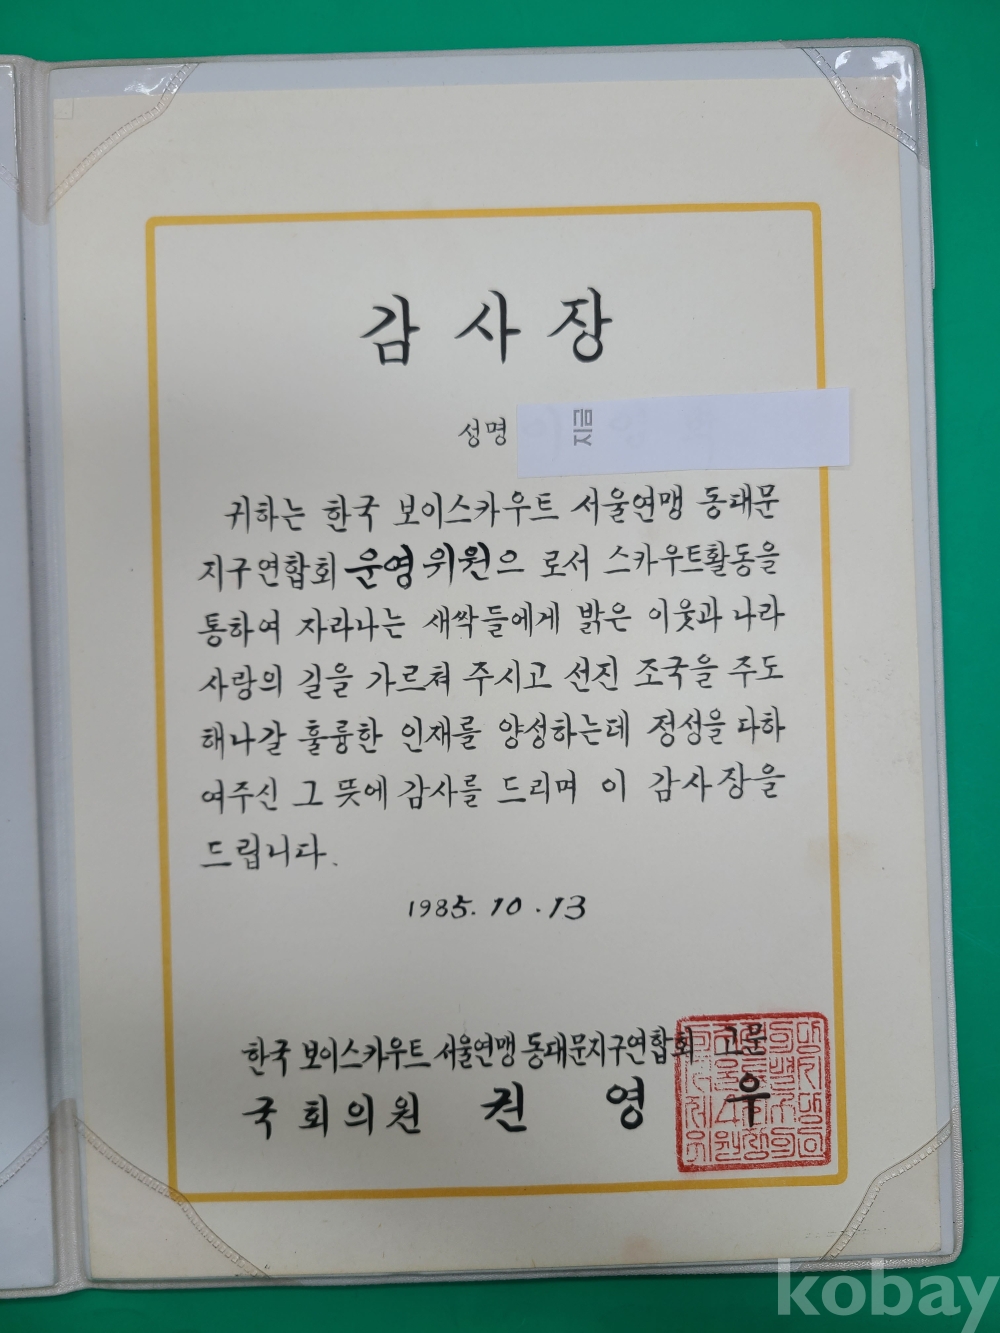 감사장
성명
귀하는 한국 보이스카우트 서울연맹 동대문
지구연합회 운영위원으로서 스카우트활동을
통하여 자라나는 새싹들에게 밝은 이웃과 나라
사랑의 길을 가르쳐 주시고 선진 조국을 주도
해나갈 훌륭한 인재를 양성하는데 정성을 다하
여주신 그 뜻에 감사를 드리며 이 감사장을
드립니다.
1985.10.13
한국 보이스카우트 서울연맹 동대문지구연합회 고문
국회의원 권영우
kobay